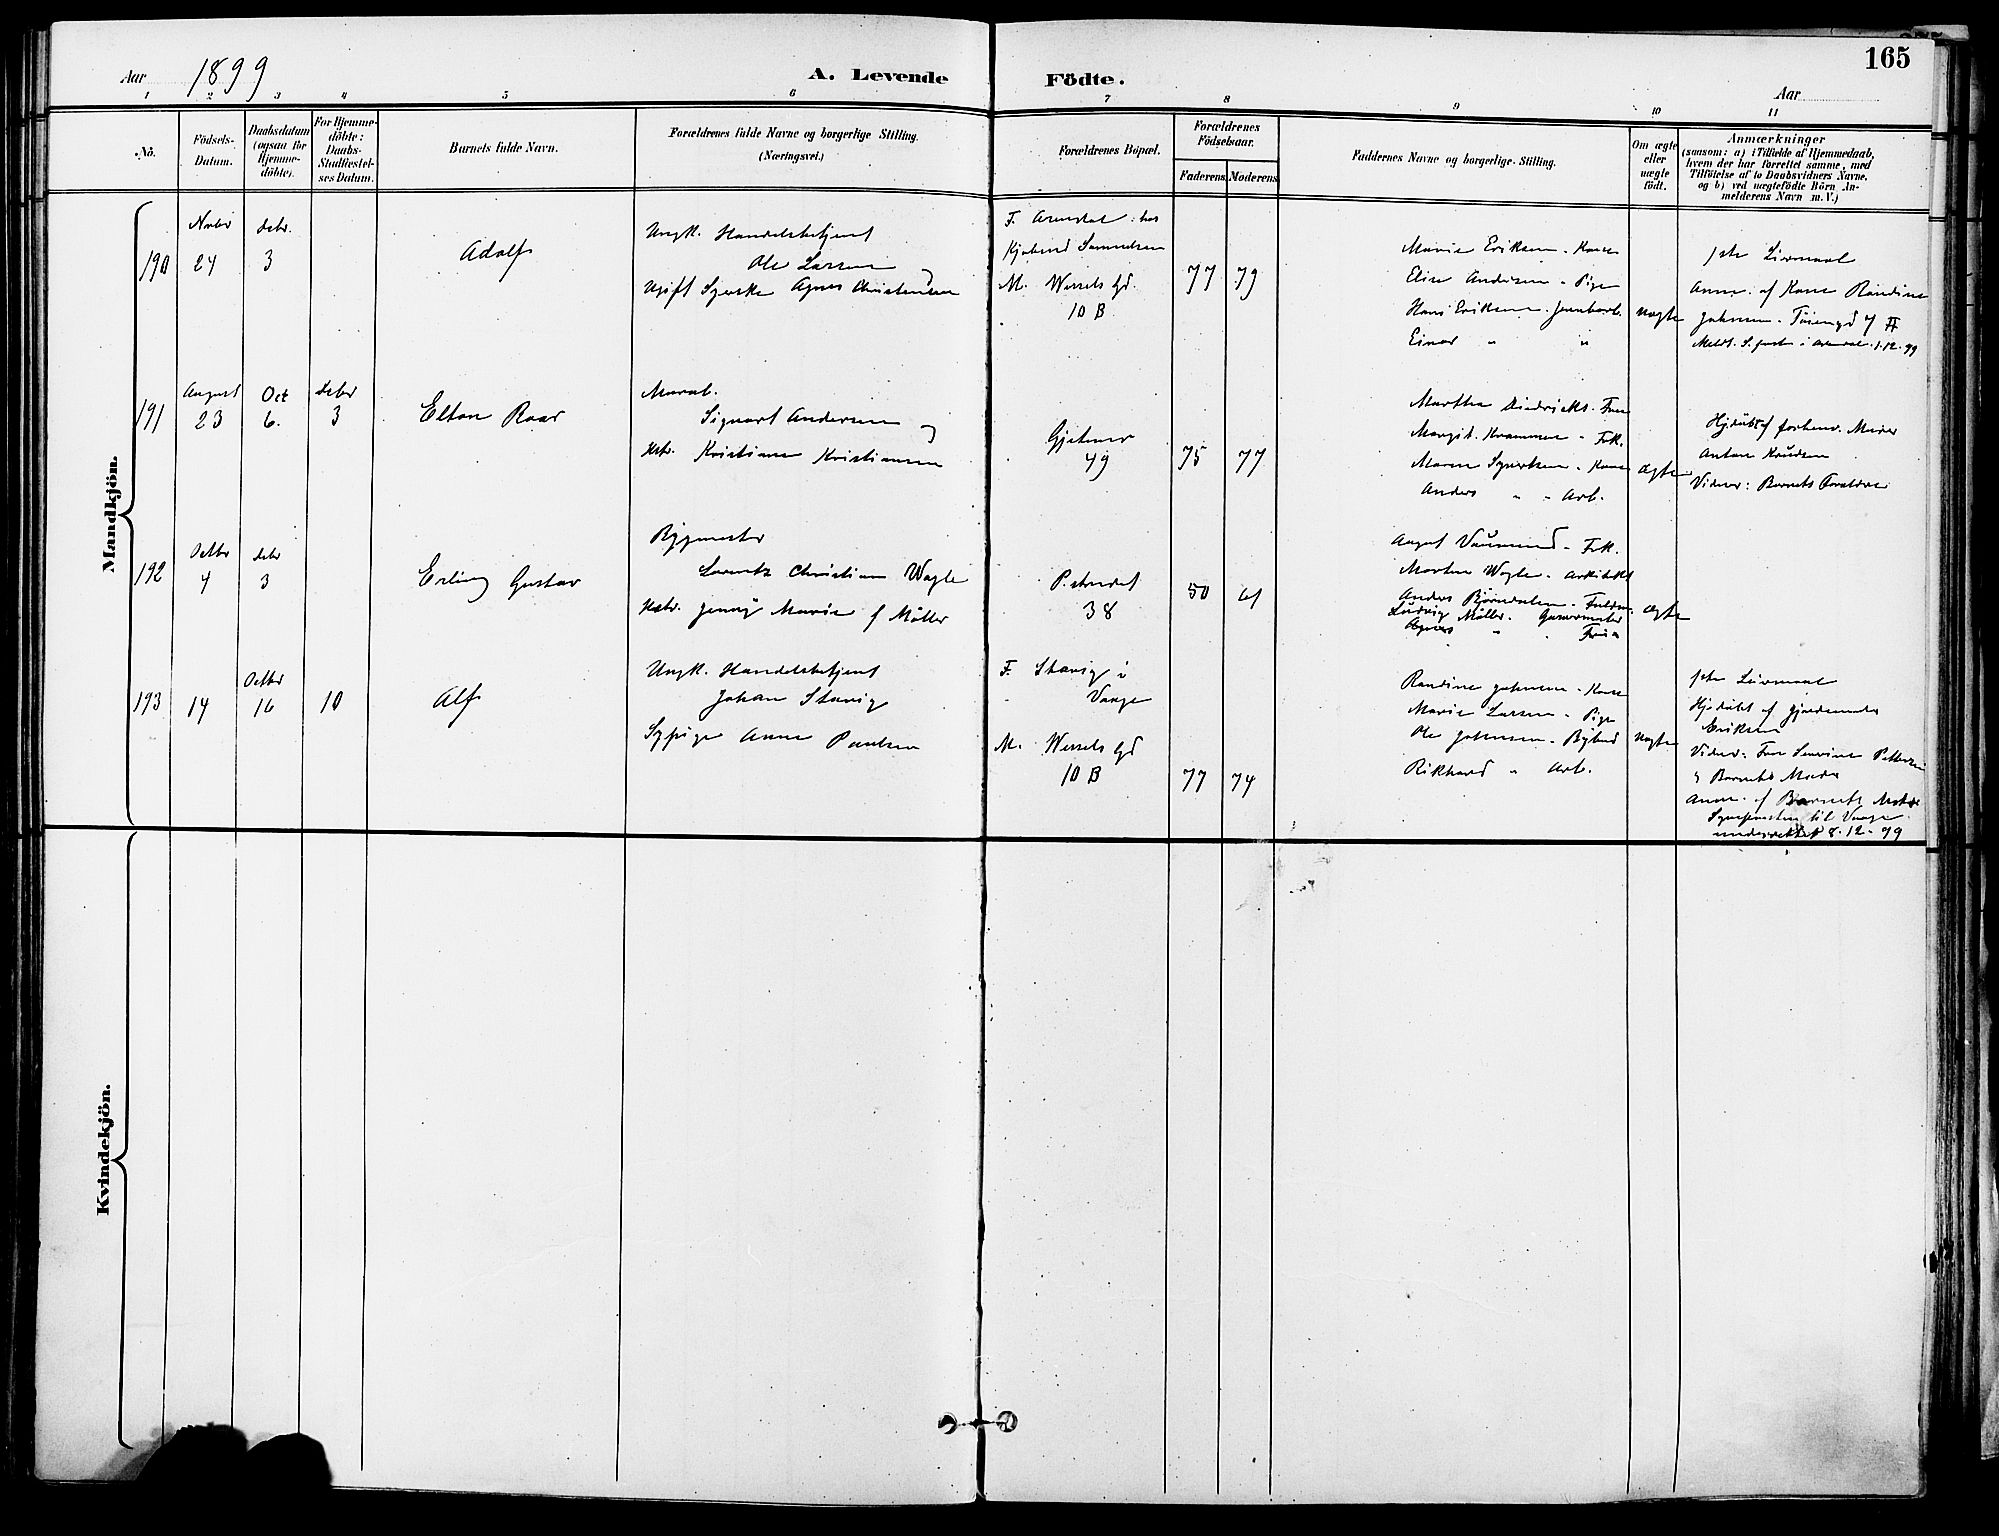 165
Aar 1899
A. Levende Födte.
Aar
1 2 3 4 5 6 7 8 9 10 11
No.
Födsels-Datum.
Daabsdatum (ogsaa for Hjemme-döbte).
For Hjemme-döbte: Daabs-Stadfæstel-ses Datum.
Barnets fulde Navn.
Forældrenes fulde Navne og borgerlige Stilling.
(Næringsvei.)
Forældrenes Bopæl.
Forældrenes Födselsaar.
Faderens. Moderens.
Faddernes Navne og borgerlige Stilling.
Om ægte eller uægte födt.
Anmærkninger
(saasom: a) i Tilfælde af Hjemmedaab,
hvem der har forrettet samme, med
Tilföielse af to Daabsvidners Navne,
og b) ved uægtefödte Börn An-
melderens Navn m. V.)
Mandkjön.
190
Novbr 24
Debr. 3
Adolf
Ungk. Handelsbetjent
Ole Larsen og
Ugift Syerske Agnes Christensen
F. Arendal hos
Kjøbmd Samuelsen
M. Wessels Gd.
10 B
77 79
Marie Eriksen - Kone
Elise Andersen - Pige
Hans Eriksen - Jernbarb.
Einar " "
uægte
1ste Leiermaal
Anm. af Kone Randine
Johnsen - Töiengd 4 II
Meldt S.prest i Arendal 1.12.99
191
August 23
Oct 6.
Debr 3
Elton Roar
Murarb.
Sigvart Andersen og
Hstr. Kristiane Kristiansen
Gjetemer
49
75 77
Martha Diedrichs. Frue
Margit Krammer - Frk.
Maren Syvertsen - Kone
Anders " - Arb.
ægte
Hjdöbt af forhenv. Murer
Anton Knudsen
Vidner: Barnets Forældre
192
Octbr 4
Debr 3
Erling Gustav
Bygmester
Lorentz Christian Wogle
Hstr. Jenny Marie f Möller
P. stredet
38
50 61
August - Frk.
Morten Wogle - Arkitekt
Anders Björndalen - Fuldm.
Ludvig Möller - Garvermester
Agnes " - Frue
ægte
193
14
Octbr 16
10
Alf
Ungk. Handelsbetjent
Johan Stavig
Sypige Anna Paulsen
F. Stavig i
Vaage
M. Wessels Gd
10 B
77 74
Randine Johnsen - Kone
Marie Larsen - Pige
Ole Johnsen - Bybud
Rikhard " Arb.
uægte
1ste Leiermaal
Hjdöbt af Gjordemoder
Eriksen
Vidner: Frue Severine Pettersen
& Barnets Moder
Anm. af Barnets Moder
Sognepresten til Vaage
underrettet 8.12.99
Kvindekjön.